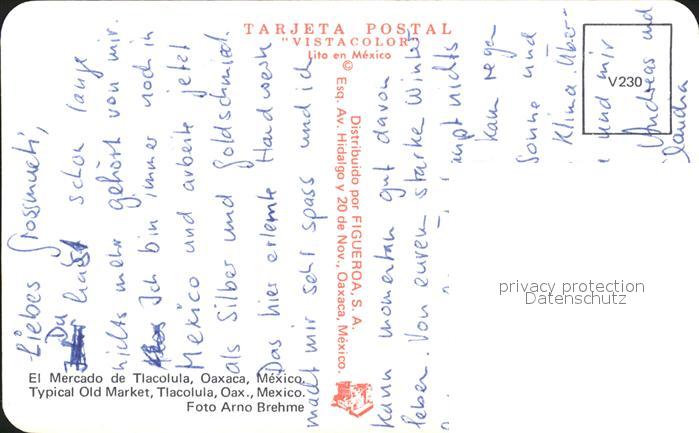 TARJETA POSTAL
"VISTACOLOR"
Lito en México
©
Distribuido por FIGUEROA, S. A.
Esq. Av. Hidalgo y 20 de Nov., Oaxaca, México.
V230
Liebes Grossmueti,
Du hast schon lange
nichts mehr gehört von mir.
Ich bin immer noch in
Mexico und arbeite jetzt
als Silber und Goldschmied.
Das hier erlernte Handwerk
macht mir sehr spass und ich
kann momentan gut davon
leben. Von eurem starke Winter
nichts
kaum regen
Sonne und
Klima. Über-
und mir
Andreas und
Claudia
privacy protection
Datenschutz
El Mercado de Tlacolula, Oaxaca, México.
Typical Old Market, Tlacolula, Oax., Mexico.
Foto Arno Brehme